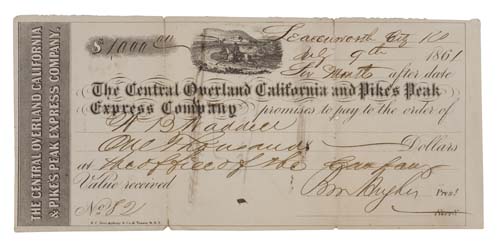 THE CENTRAL OVERLAND CALIFORNIA
& PIKES PEAK EXPRESS COMPANY.
$ 1000.00
Leavenworth City
July 9th 1861
Six Months after date
The Central Overland California and Pike's Peak
Express Company promises to pay to the order of
W B Waddell
One Thousand Dollars
at the office of the Company
Value received
Bm Hughes Pres't
No 82